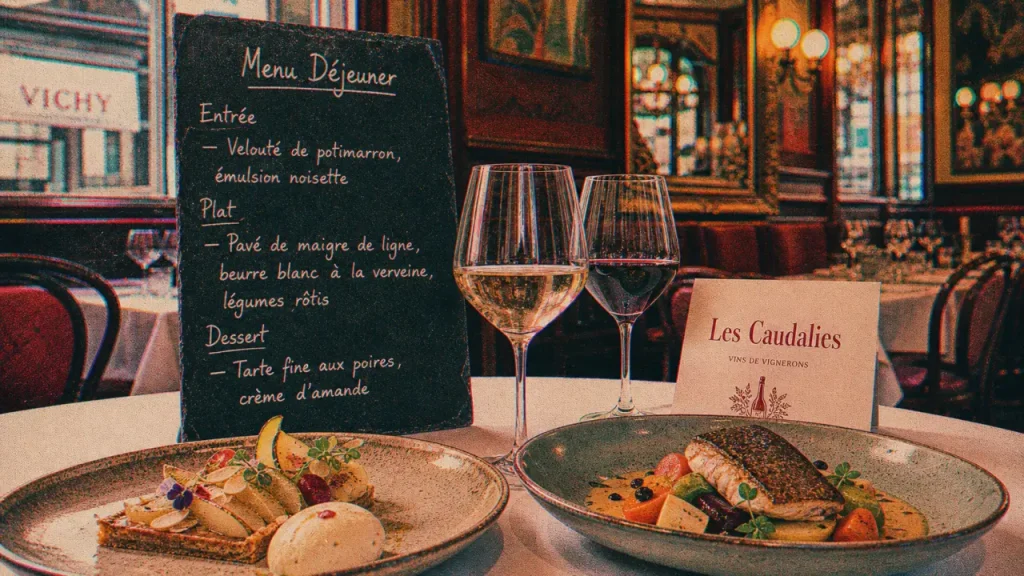 VICHY
Menu Déjeuner
Entrée
– Velouté de potimarron,
émulsion noisette
Plat
– Pavé de maigre de ligne,
beurre blanc à la verveine,
légumes rôtis
Dessert
– Tarte fine aux poires,
crème d'amande
Les Caudalies
VINS DE VIGNERONS